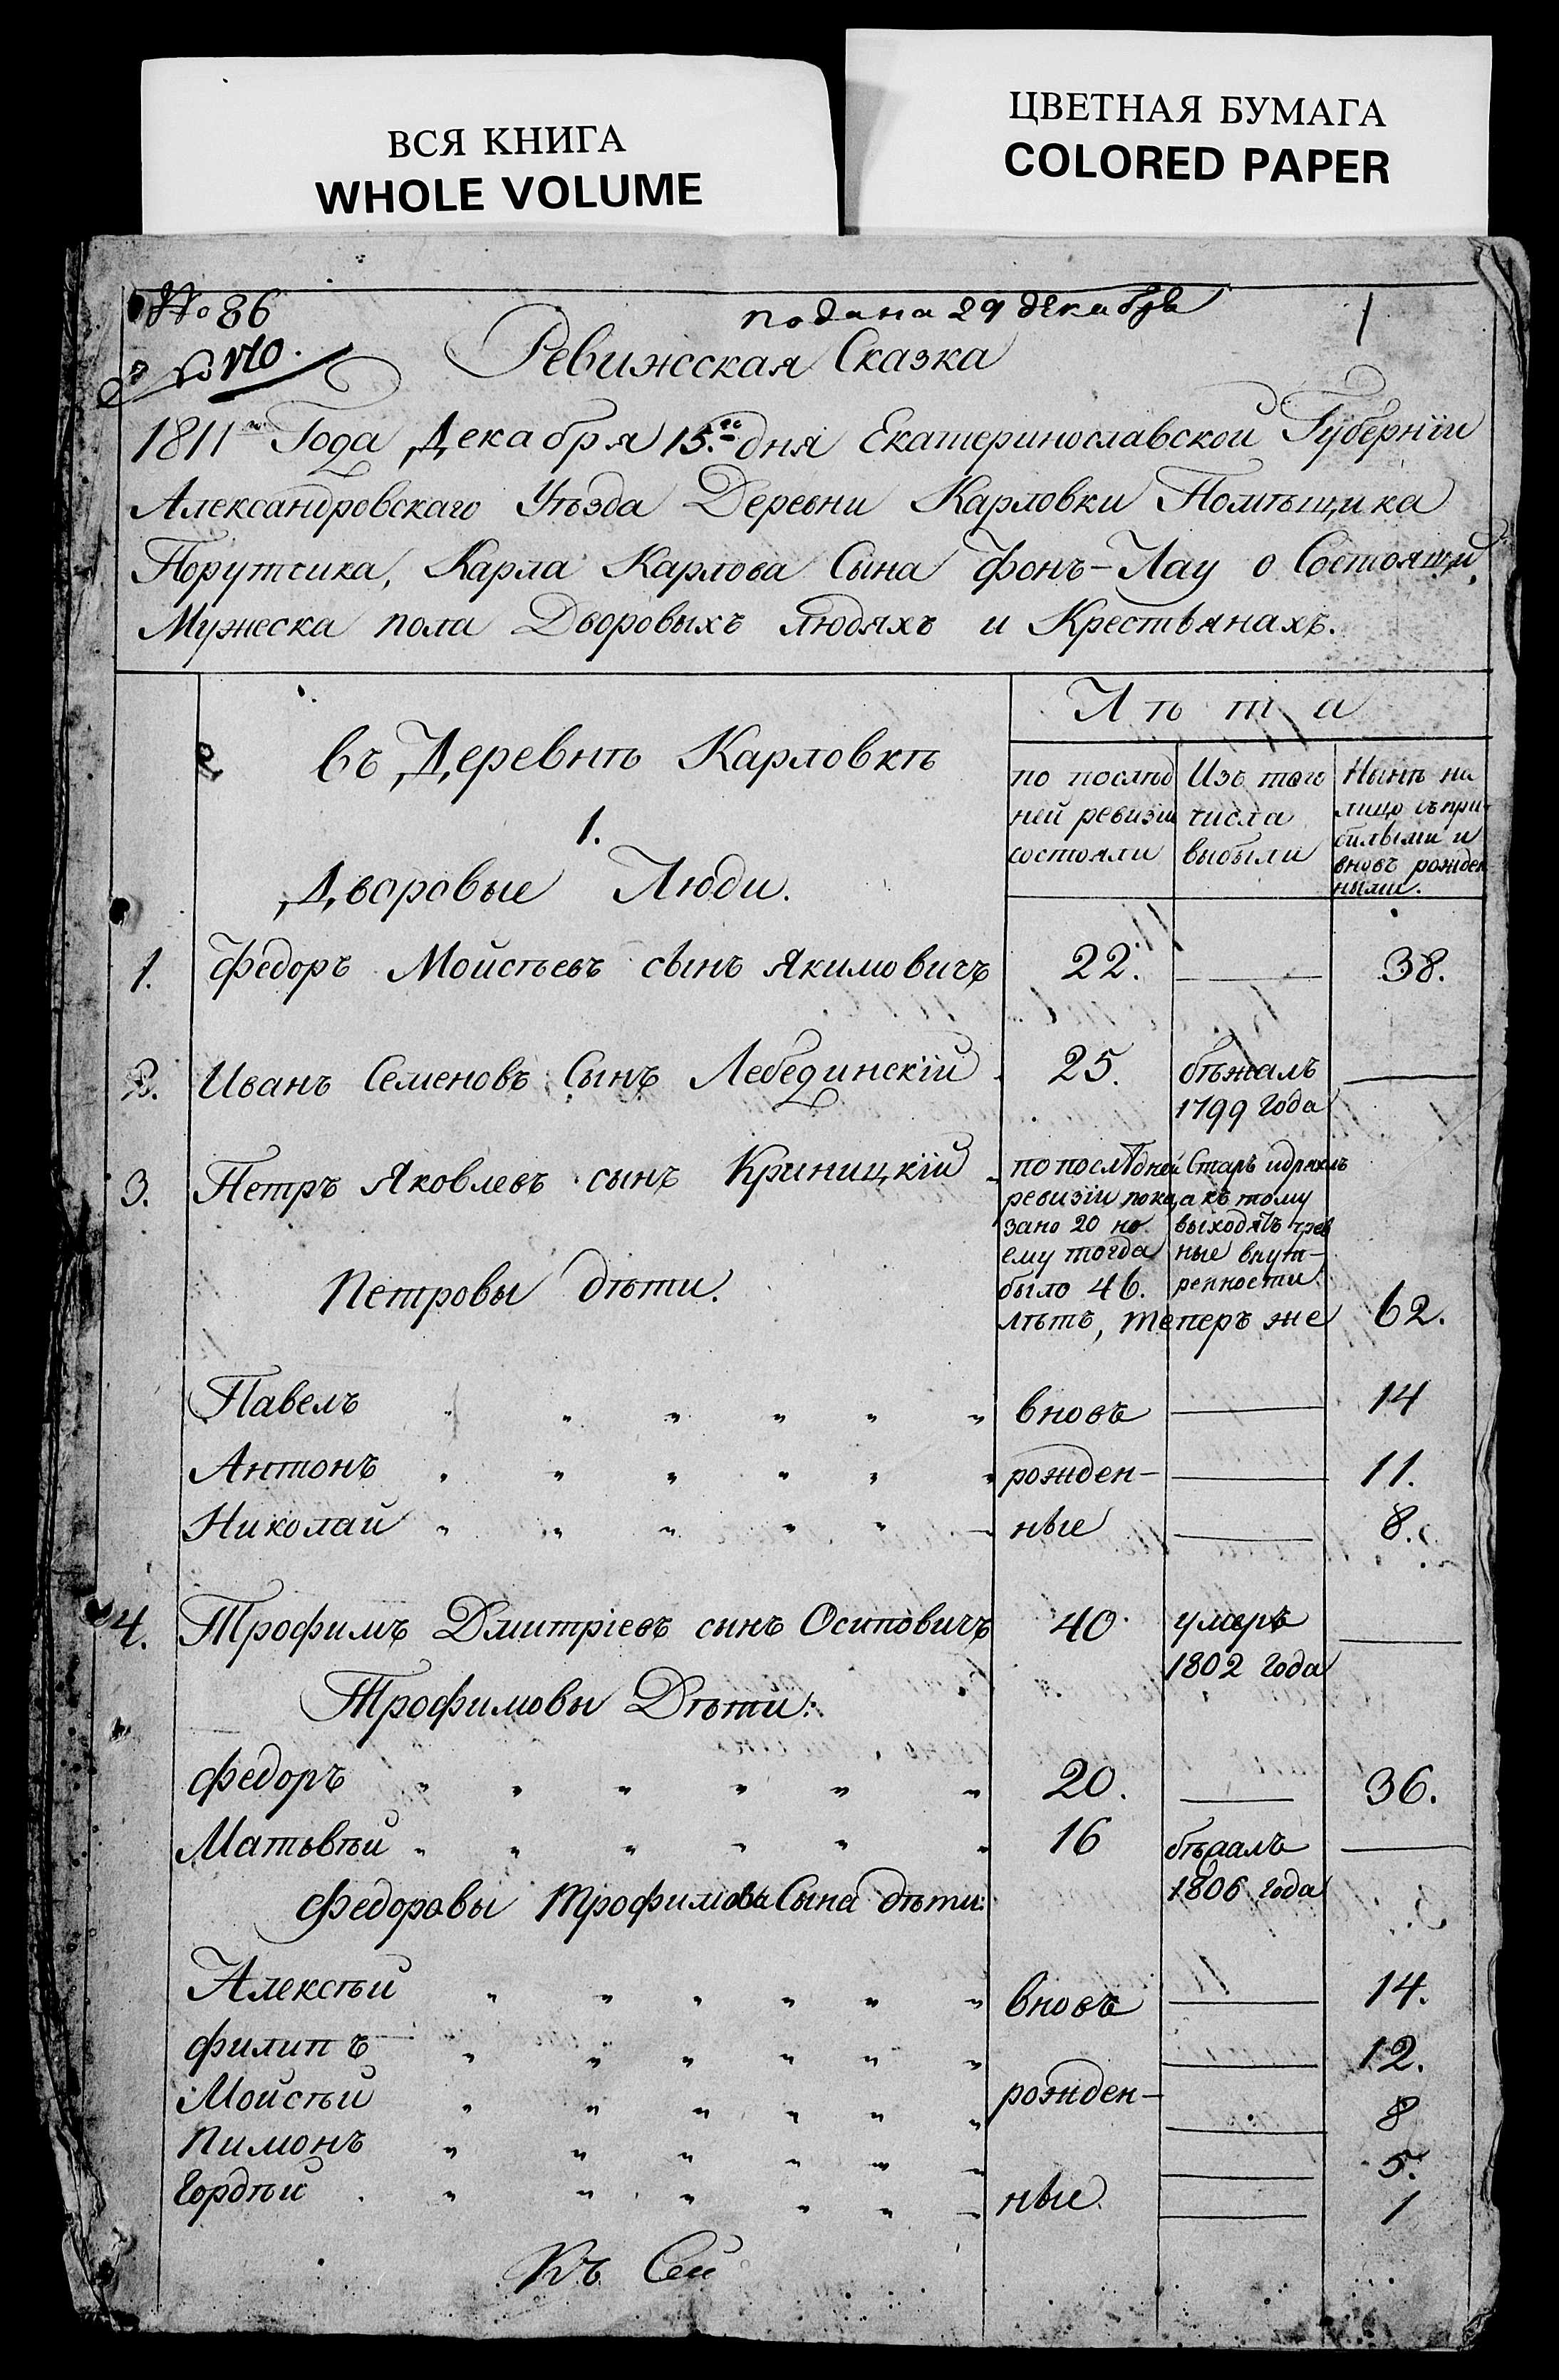 ВСЯ КНИГА
WHOLE VOLUME
ЦВЕТНАЯ БУМАГА
COLORED PAPER
№ 86
подана 29 декабря
1
Ревижсская Сказка
1811го Года Декабря 15го дня Екатеринославской Губерніи
Александровскаго Уѣзда Деревни Карловки Помѣщика
Порутсика, Карла Карлова Сына Фонъ-Лау о Состоящи
Мужеска пола Дворовыхъ Людяхъ и Крестьянахъ.
Лѣта
въ Деревнѣ Карловкѣ
1.
Дворовые Люди.
по послѣд
ней ревизіи
состояли
Изъ того
числа
выбыли
Нынѣ на
лицо съ при-
былыми и
вновь рожден
ными.
1. Федоръ Мойсѣевъ сынъ Якимовичъ 22. — 38.
2. Иванъ Семеновъ Сынъ Лебединскій 25. бѣжалъ —
1799 Года
3. Петръ Яковлевъ сынъ Криницкій
по послѣдней
ревизіи пока
зано 20 но
ему тогда
было 46.
лѣтъ, теперъ же 62.
Старъ идряхлъ
а къ тому
выходятъ чрев
ные внут-
ренности.
Петровы дѣти.
Павелъ " " " " " " вновь — 14
Антонъ " " " " " " рожден- — 11.
Николай " " " " " — ные — 8.
4. Трофимъ Дмитріевъ сынъ Осиповичъ 40. умеръ —
1802 Года
Трофимовы Дѣти:
Федоръ " " " " " " 20. — 36.
Матьвѣй " " " " " " 16 —
1806 года
Федоровы Трофимова Сына дѣти:
Алексѣй " " " " " " вновь — 14.
Филипъ " " " " " " — 12.
Мойсѣй " " " " " " рожден- — 8
Пимонъ " " " " " — — 5.
Гордѣй " " " " " — ные. — 1
Къ Сей